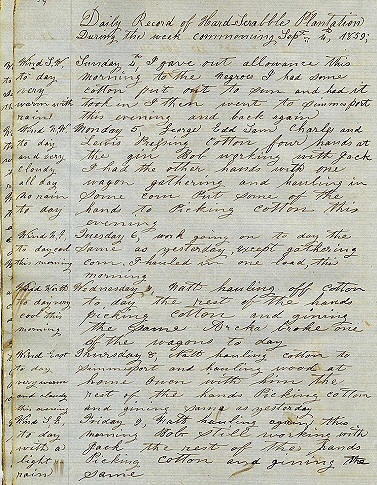 Daily Record of Hard Scrabble Plantation
During this week commencing Sept. 4, 1859;
Wind S.W. Sunday 4th I gave out allowance this
to day morning to the negroes I had some
very cotton put out to sun and had it
warm with took in I then went to Simmesport
rain this evening and back again
Wind N.W. Monday 5, George Edd Sam Charly and
to day Lewis Pressing Cotton four hands at
and very the gin Bob working with Jack
cloudy I had the other hands with one
all day wagon gathering and hauling in
no rain Some corn Put Some of the
to day hands to Picking cotton this
evening
Wind N. Tuesday 6, work going on to day the
to day cool Same as yesterday, except gathering
this morning corn. I hauled in one load, this
morning
Wind North Wednesday 7, Nath hauling off Cotton
to day very to day the rest of the hands
cool this picking cotton and gining
morning the Same broke one
of the wagons to day
Wind East Thursday 8, Nath hauling cotton to
to day Simmsport and hauling wood at
very warm home Owen with him the
and cloudy rest of the hands Picking cotton
this evening and gining same as yesterday
Wind S.E. Friday 9, Nath hauling again this
to day morning Bob Still working with
with a Jack the rest of the hands
light Picking cotton and gining the
rain Same